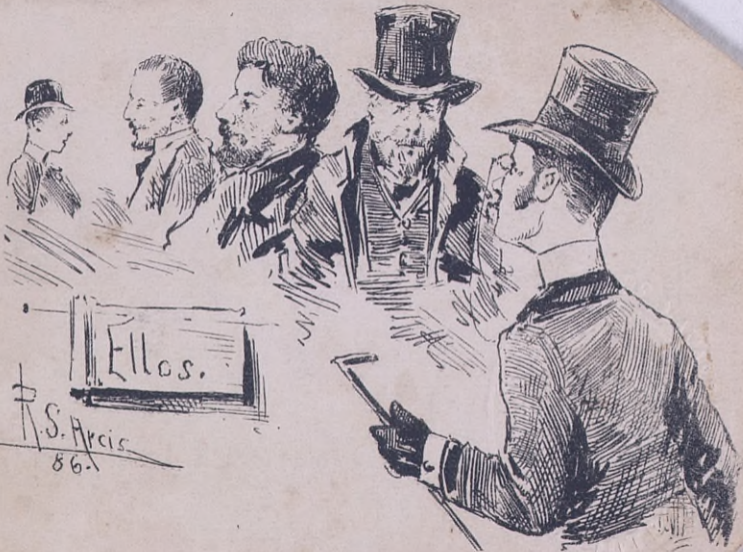 Ellos.
R. S. Arcis
86.